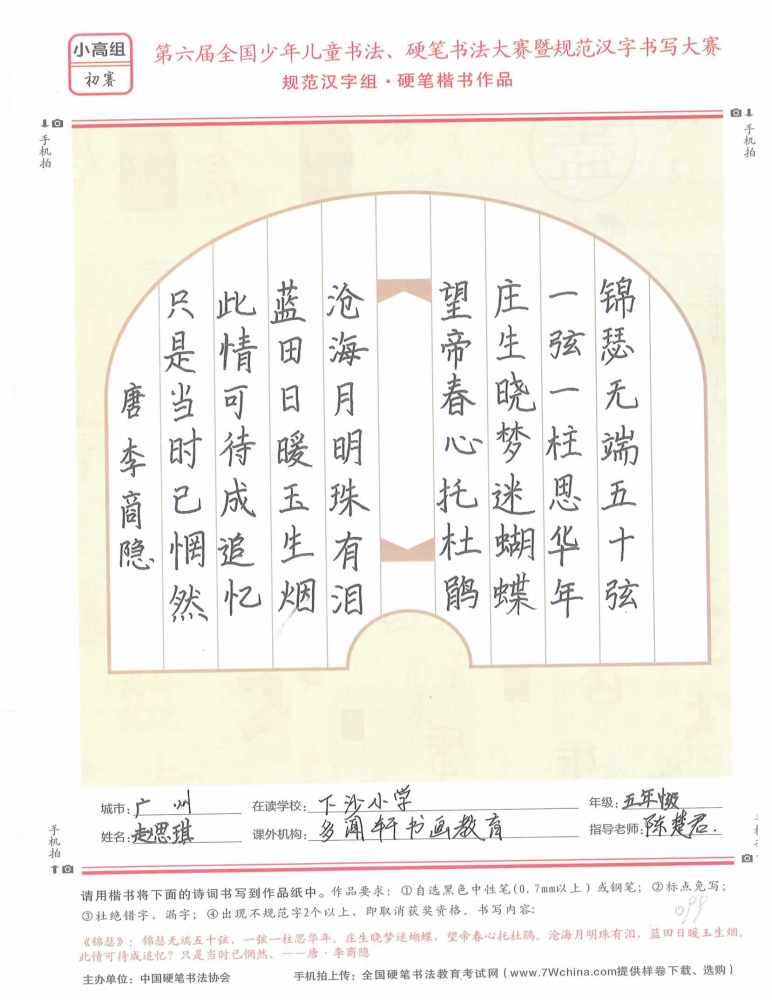 小高组
初赛
第六届全国少年儿童书法、硬笔书法大赛暨规范汉字书写大赛
规范汉字组·硬笔楷书作品
手机拍
手机拍
锦瑟无端五十弦
一弦一柱思华年
庄生晓梦迷蝴蝶
望帝春心托杜鹃
沧海月明珠有泪
蓝田日暖玉生烟
此情可待成追忆
只是当时已惘然
唐 李商隐
城市:广州 在读学校:下沙小学 年级:五年级
姓名:赵思琪 课外机构:多闻轩书画教育 指导老师:陈楚君.
手机拍
请用楷书将下面的诗词书写到作品纸中。作品要求:①自选黑色中性笔(0.7mm以上)或钢笔;②标点免写;
③杜绝错字、漏字;④出现不规范字2个以上,即取消获奖资格。书写内容:
099
《锦瑟》:锦瑟无端五十弦,一弦一柱思华年。庄生晓梦迷蝴蝶,望帝春心托杜鹃。沧海月明珠有泪,蓝田日暖玉生烟。
此情可待成追忆?只是当时已惘然。——唐·李商隐
主办单位:中国硬笔书法协会 手机拍上传:全国硬笔书法教育考试网(www.7Wchina.com提供样卷下载、选购)